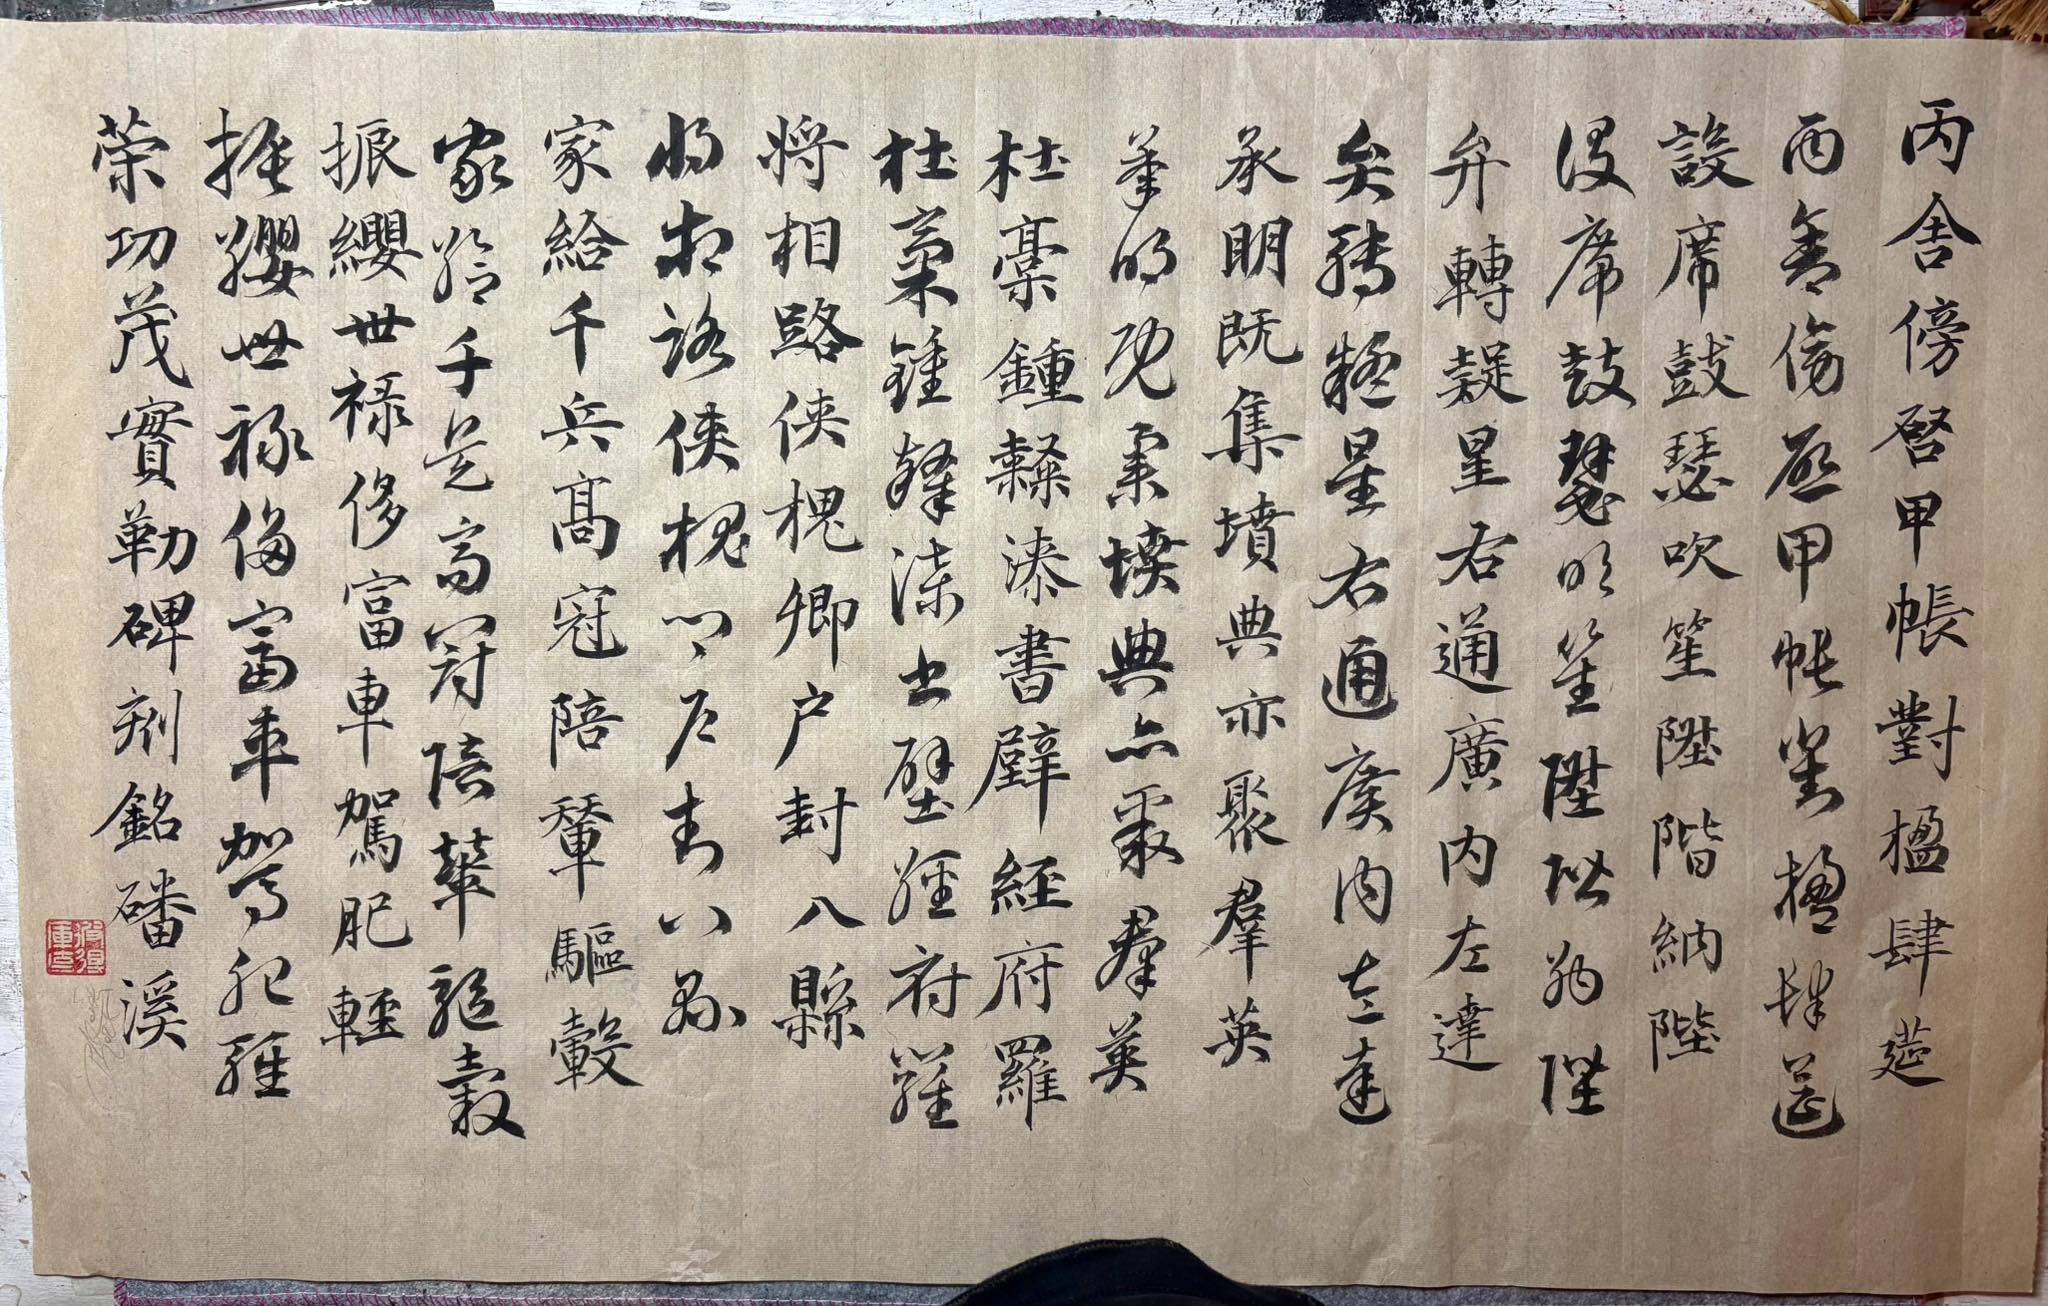 丙舍傍啓甲帳對楹肆筵
丙舍傍啓甲帳對楹肆筵
設席鼓瑟吹笙陞階納陛
設席鼓瑟吹笙陞階納陛
弁轉疑星右通廣内左達
弁轉疑星右通廣内左達
承明既集墳典亦聚羣英
承明既集墳典亦聚羣英
杜稾鍾隸漆書壁經府羅
杜稾鍾隸漆書壁經府羅
将相路俠槐卿户封八縣
将相路俠槐卿户封八縣
家給千兵高冠陪輦驅轂
家給千兵高冠陪輦驅轂
振纓世禄侈富車駕肥輕
振纓世禄侈富車駕肥輕
荣功茂實勒碑刻銘磻溪